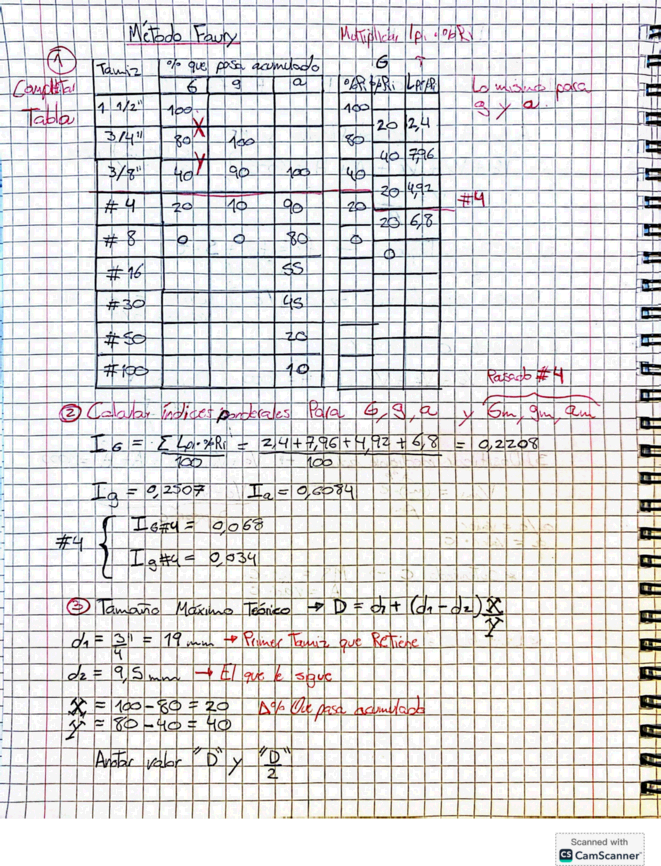 Método Faury
Multiplicar Ipi · %Ri
① Completar Tabla
Tamiz | % que pasa acumulado | G
G | g | a | %AR | %Ri | Ipi·%R
1 1/2" | 100 | 100
20 | 2,4
3/4" | 80 | 100 | 80
40 | 7,96
3/8" | 40 | 90 | 100 | 40
20 | 4,92
# 4 | 20 | 10 | 90 | 20
20 | 6,8
# 8 | 0 | 0 | 80 | 0
0
# 16 | 55
# 30 | 45
# 50 | 20
# 100 | 10
X
Y
Lo mismo para
g y a.
#4
Pasado #4
② Calcular índices ponderales Para G, g, a y Gm, gm, am
I G = Σ Ipi·%Ri / 100 = 2,4 + 7,96 + 4,92 + 6,8 / 100 = 0,2208
Ig = 0,2507 Ia = 0,6084
#4 { IG#4 = 0,068
Ig#4 = 0,034
③ Tamaño Máximo Teórico → D = d1 + (d1 - d2) X/Y
d1 = 3/4" = 19 mm → Primer Tamiz que Retiene
d2 = 9,5 mm → El que le sigue
X = 100 - 80 = 20 Δ% Que pasa acumulado
Y = 80 - 40 = 40
Anotar valor "D" y "D/2"
Scanned with
CS CamScanner